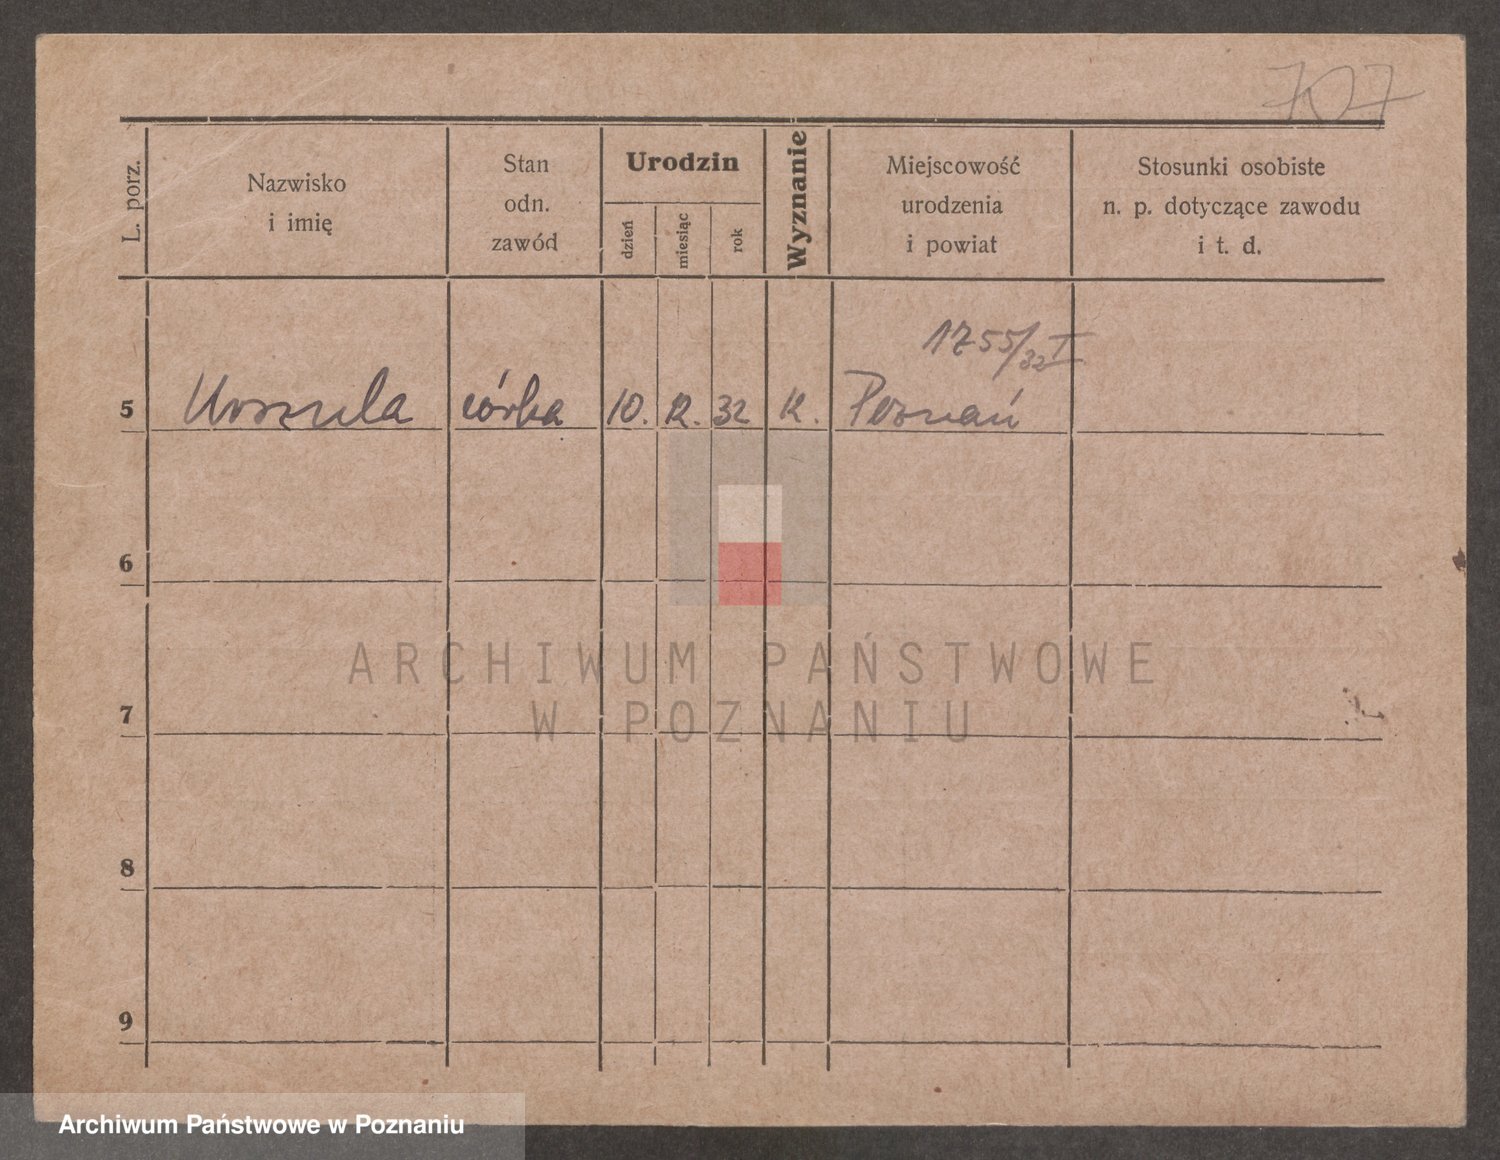 707
L. porz.
Nazwisko
i imię
Stan
odn.
zawód
Urodzin
dzień
miesiąc
rok
Wyznanie
Miejscowość
urodzenia
i powiat
Stosunki osobiste
n. p. dotyczące zawodu
i t. d.
1755/32 I
5 Urszula córka 10. 12. 32 k. Poznań
6
7
8
9
ARCHIWUM PAŃSTWOWE
W POZNANIU
Archiwum Państwowe w Poznaniu